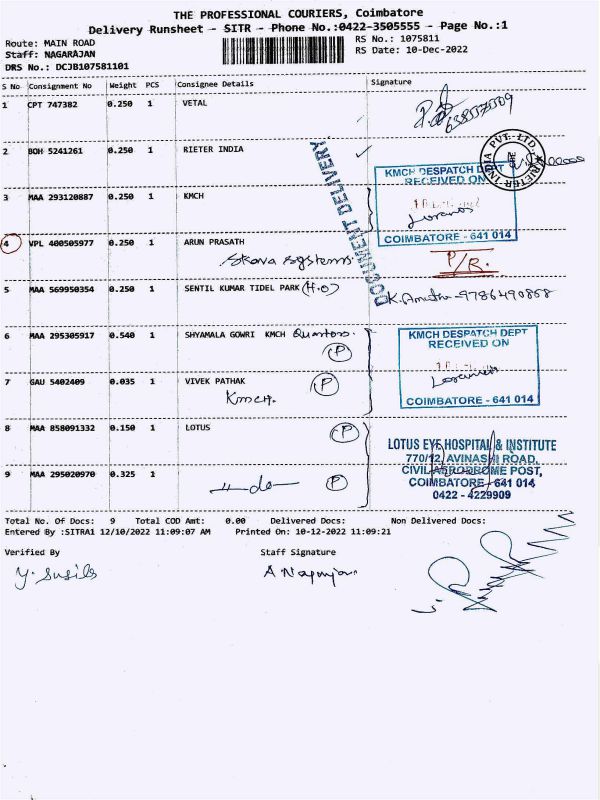 THE PROFESSIONAL COURIERS, Coimbatore
Delivery Runsheet - SITR - Phone No.:0422-3505555 - Page No.:1
Route: MAIN ROAD
Staff: NAGARAJAN
DRS No.: DCJB107581101
RS No.: 1075811
RS Date: 10-Dec-2022
S No Consignment No Weight PCS Consignee Details Signature
1 CPT 747382 0.250 1 VETAL
2 BOH 5241261 0.250 1 RIETER INDIA
RIETER INDIA PVT. LTD.
DOCUMENT DELIVERY
3 MAA 293120887 0.250 1 KMCH
KMCH DESPATCH DEPT
RECEIVED ON
COIMBATORE - 641 014
4 VPL 400505977 0.250 1 ARUN PRASATH
Skava systems
P/R.
5 MAA 569950354 0.250 1 SENTIL KUMAR TIDEL PARK (H.O)
6 MAA 295305917 0.540 1 SHYAMALA GOWRI KMCH
P
KMCH DESPATCH DEPT
RECEIVED ON
COIMBATORE - 641 014
7 GAU 5402409 0.035 1 VIVEK PATHAK P
KMCH.
8 MAA 858091332 0.150 1 LOTUS P
LOTUS EYE HOSPITAL & INSTITUTE
770/12, AVINASHI ROAD,
CIVIL AERODROME POST,
COIMBATORE - 641 014
0422 - 4229909
9 MAA 295020970 0.325 1 -do- P
Total No. Of Docs: 9 Total COD Amt: 0.00 Delivered Docs: Non Delivered Docs:
Entered By :SITRA1 12/10/2022 11:09:07 AM Printed On: 10-12-2022 11:09:21
Verified By Staff Signature
Y. Susila